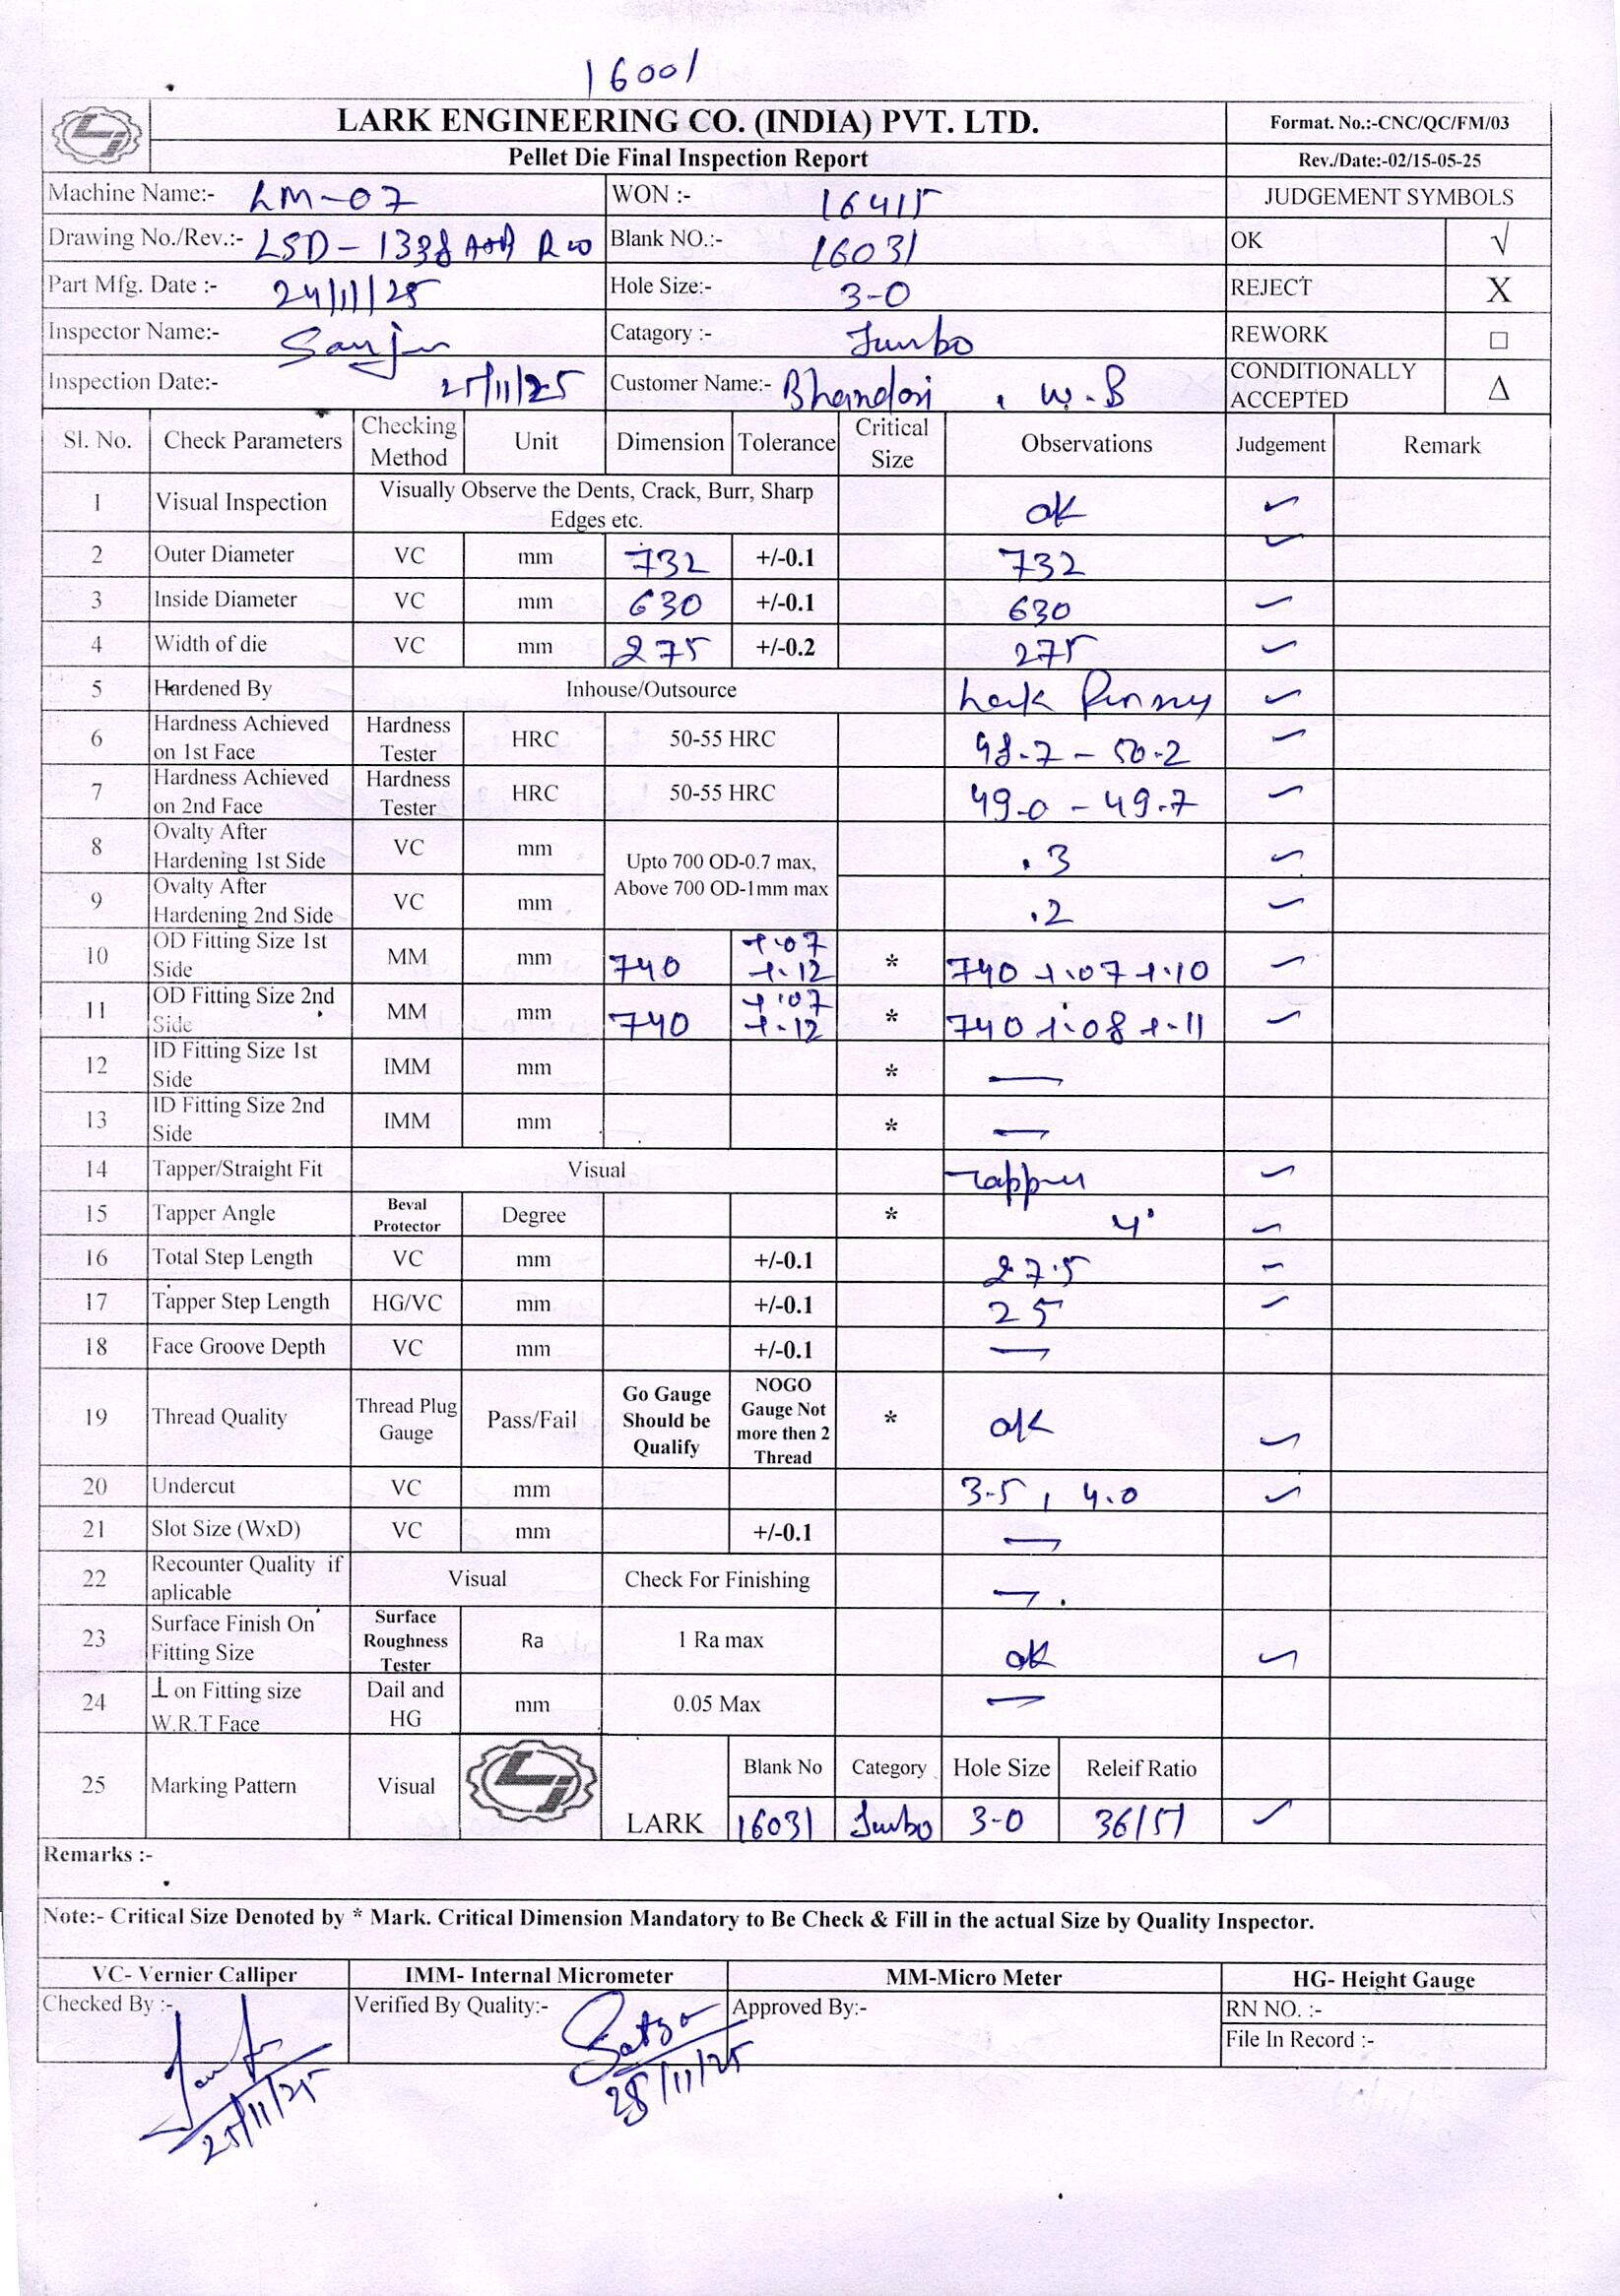 16001
LARK ENGINEERING CO. (INDIA) PVT. LTD.
Format. No.:-CNC/QC/FM/03
Pellet Die Final Inspection Report
Rev./Date:-02/15-05-25
Machine Name:- LM-07 WON :- 16415 JUDGEMENT SYMBOLS
Drawing No./Rev.:- LSD-1338 Blank NO.:- 16031 OK √
Part Mfg. Date :- 24/11/25 Hole Size:- 3-0 REJECT X
Inspector Name:- Sanju Catagory :- Jumbo REWORK □
Inspection Date:- 25/11/25 Customer Name:- Bhandari , W.B CONDITIONALLY ACCEPTED Δ
Sl. No. Check Parameters Checking Method Unit Dimension Tolerance Critical Size Observations Judgement Remark
1 Visual Inspection Visually Observe the Dents, Crack, Burr, Sharp Edges etc. ok ✓
2 Outer Diameter VC mm 732 +/-0.1 732 ✓
3 Inside Diameter VC mm 630 +/-0.1 630 ✓
4 Width of die VC mm 275 +/-0.2 275 ✓
5 Hardened By Inhouse/Outsource Lark ✓
6 Hardness Achieved on 1st Face Hardness Tester HRC 50-55 HRC 48.7 - 50.2 ✓
7 Hardness Achieved on 2nd Face Hardness Tester HRC 50-55 HRC 49.0 - 49.7 ✓
8 Ovalty After Hardening 1st Side VC mm Upto 700 OD-0.7 max, Above 700 OD-1mm max .3 ✓
9 Ovalty After Hardening 2nd Side VC mm .2 ✓
10 OD Fitting Size 1st Side MM mm 740 +.07 +.12 * 740 +.07 +.10 ✓
11 OD Fitting Size 2nd Side MM mm 740 +.07 +.12 * 740 +.08 +.11 ✓
12 ID Fitting Size 1st Side IMM mm * —
13 ID Fitting Size 2nd Side IMM mm * —
14 Tapper/Straight Fit Visual Tapper ✓
15 Tapper Angle Beval Protector Degree * 4° ✓
16 Total Step Length VC mm +/-0.1 27.5 ✓
17 Tapper Step Length HG/VC mm +/-0.1 25 ✓
18 Face Groove Depth VC mm +/-0.1 —
19 Thread Quality Thread Plug Gauge Pass/Fail Go Gauge Should be Qualify NOGO Gauge Not more then 2 Thread * ok ✓
20 Undercut VC mm 3.5 , 4.0 ✓
21 Slot Size (WxD) VC mm +/-0.1 —
22 Recounter Quality if aplicable Visual Check For Finishing —
23 Surface Finish On Fitting Size Surface Roughness Tester Ra 1 Ra max ok ✓
24 ⊥ on Fitting size W.R.T Face Dail and HG mm 0.05 Max —
25 Marking Pattern Visual LARK Blank No Category Hole Size Releif Ratio
16031 Jumbo 3-0 36/51 ✓
Remarks :-
Note:- Critical Size Denoted by * Mark. Critical Dimension Mandatory to Be Check & Fill in the actual Size by Quality Inspector.
VC- Vernier Calliper IMM- Internal Micrometer MM-Micro Meter HG- Height Gauge
Checked By :- Verified By Quality:- Approved By:- RN NO. :-
File In Record :-
25/11/25